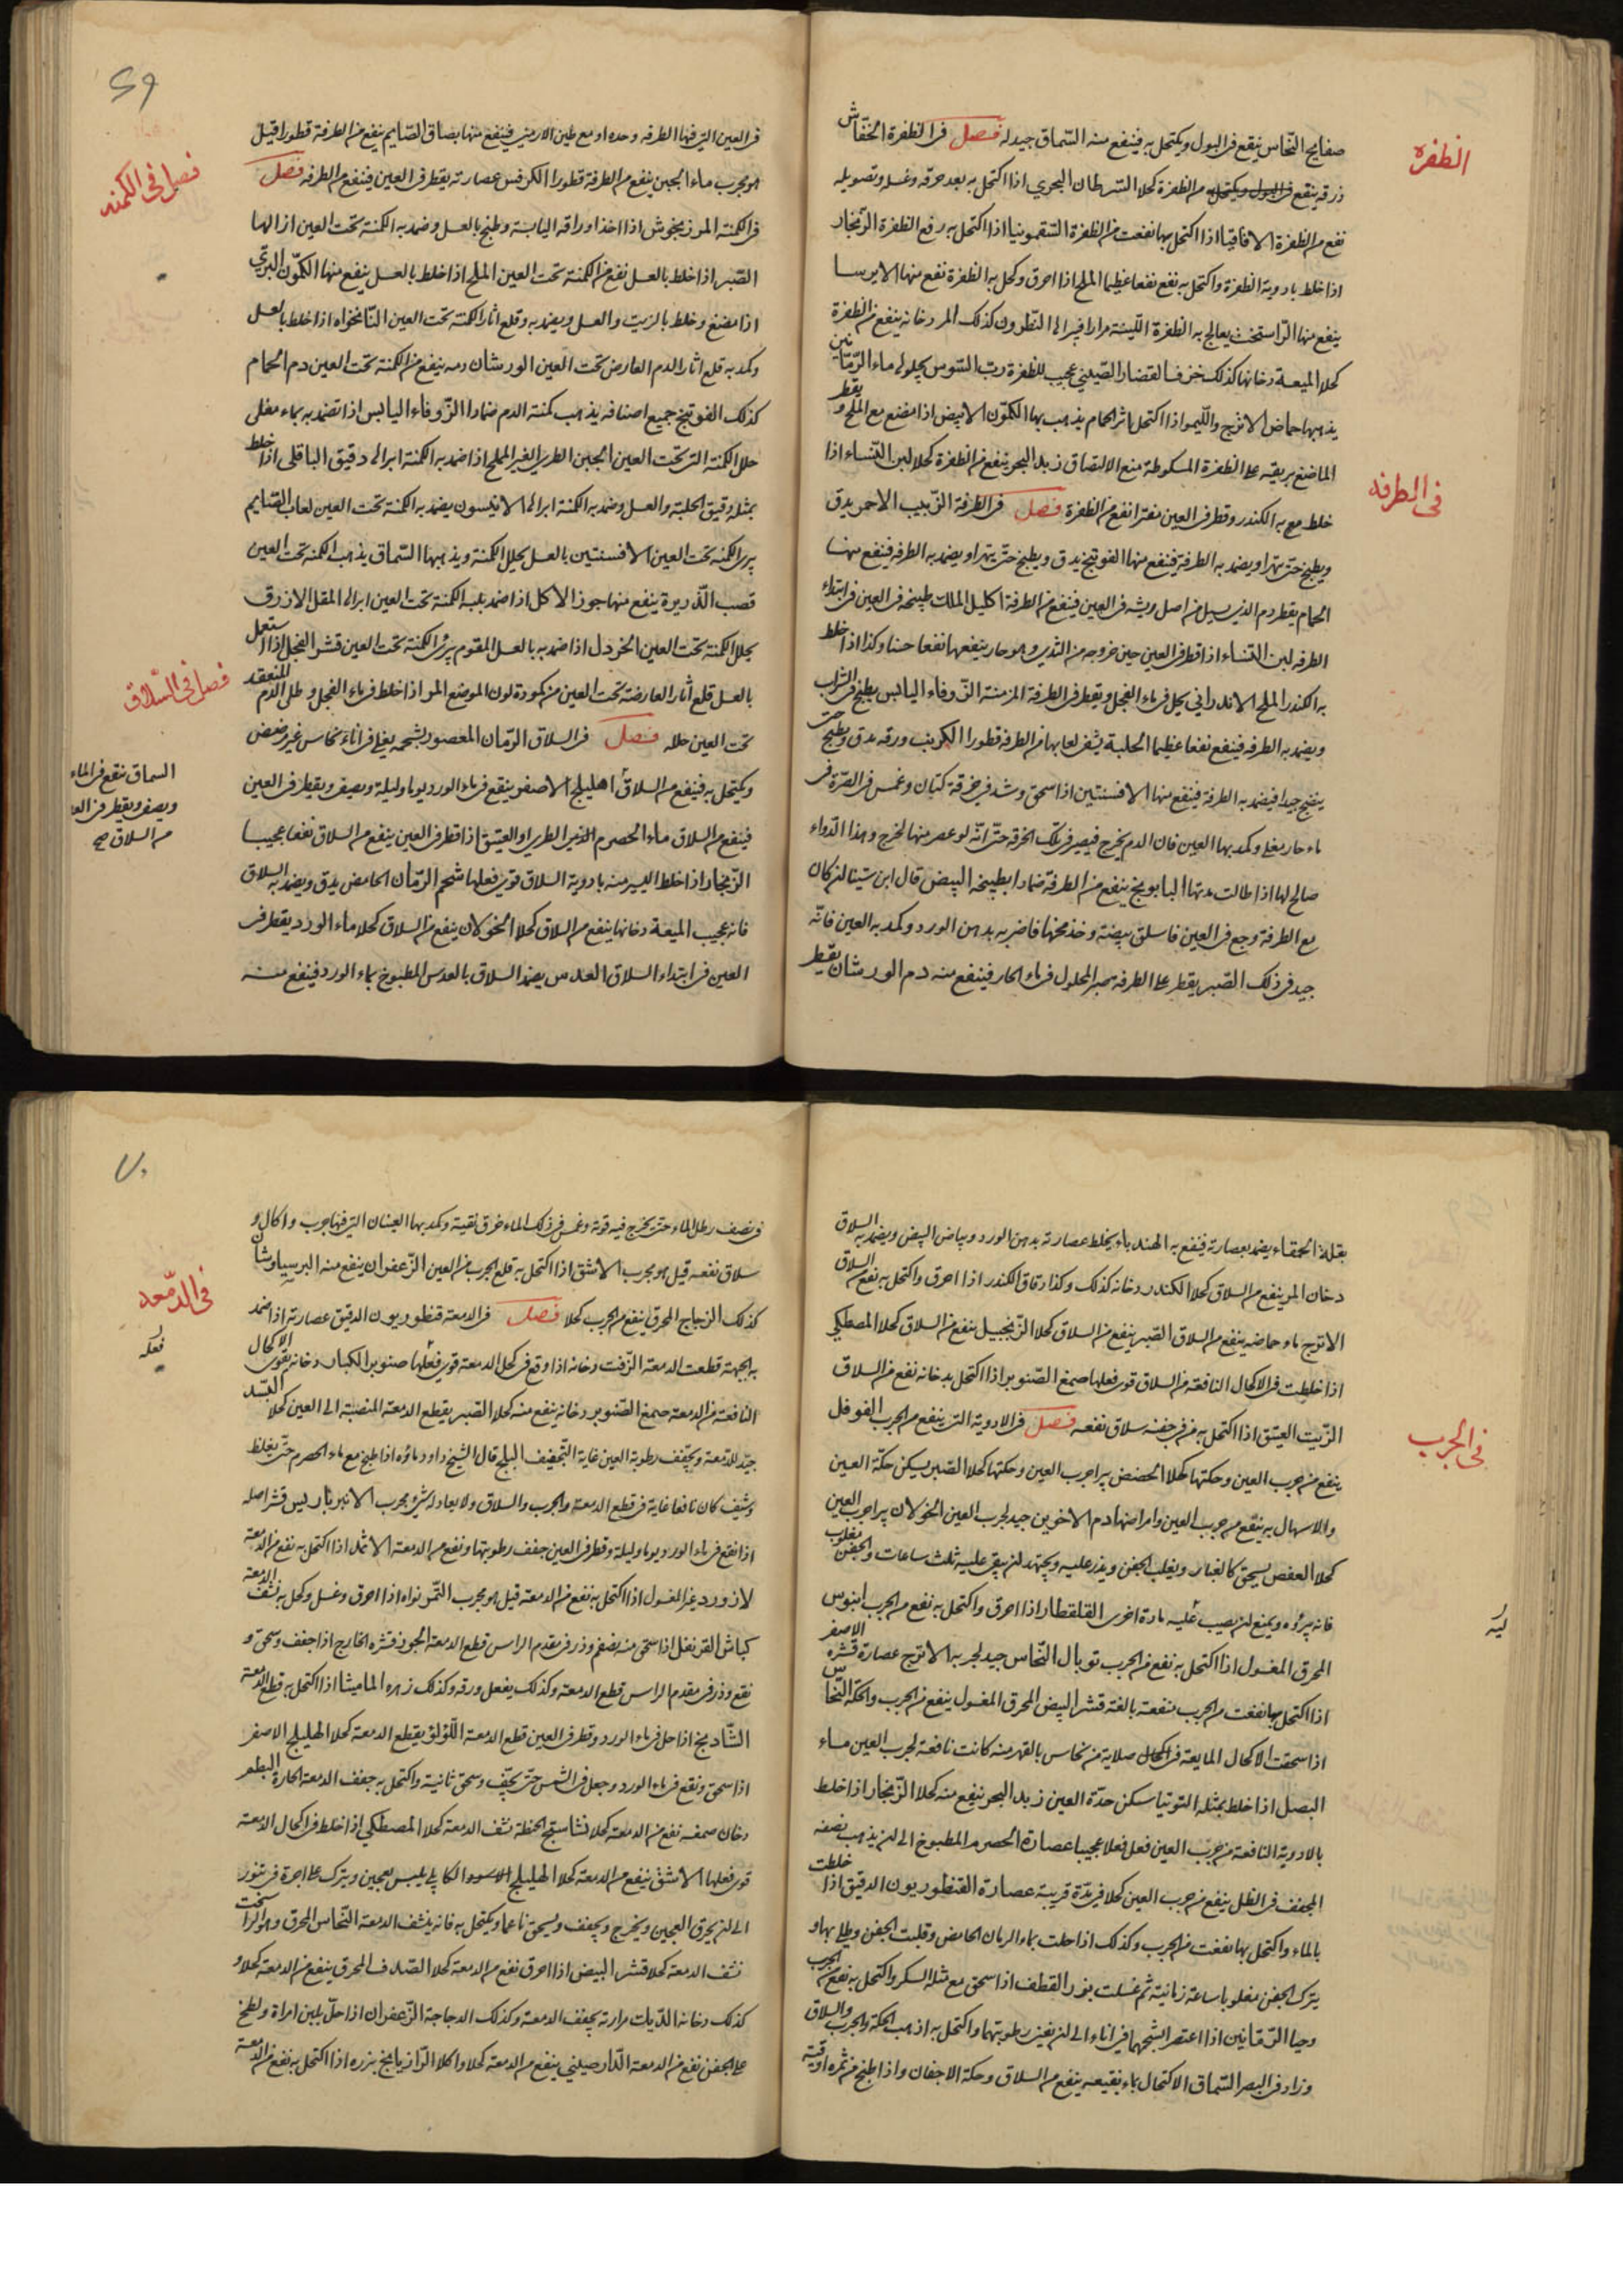 الظفره
صفايح النحاس ينقع في البول ويكتحل به فينفع منه السماق جيد له فصل في الظفرة الخفاش
ذرقه ينفع من الظفرة كحلا السرطان البحري اذا اكتحل به بعد حرقه وغسله وتصويله
نفع من الظفرة الاقاقيا اذا اكتحل بها نفعت من الظفرة السقمونيا اذا اكتحل به رفع الظفرة الزنجار
اذا خلط بادوية الظفرة واكتحل به نفع نفعا عظيما الملح اذا احرق وكحل به الظفرة نفع منها الايرسا
ينفع منها الراسخت يعالج به الظفرة اللينة مرارا فيبرا النطرون كذلك المر دخانه ينفع من الظفرة
كحلا الميعة دخانها كذلك خزف الغضار الصيني عجيب للظفرة رب السوس يجلو لها ماء الرمانين
يذهبها حماض الاترج والليمو اذا اكتحل اثر الحمام يذهب بها الكمون الابيض اذا مضغ مع الملح وقطر
الماضغ بريقه على الظفرة المكشوطة منع الالتصاق زبد البحر ينفع من الظفرة كحلا لبن النساء اذا
في الطرفه
خلط مع به الكندر وقطر في العين مفترا نفع من الظفرة فصل في الطرفة الزبيب الاحمر يدق
ويطبخ حتى يتهرا ويضمد به الطرفة فينفع منها الفوتنج يدق ويطبخ حتى يتهرا ويضمد به الطرفه فينفع منها
الحمام يقطر دم الذي يسيل من اصل ريشه في العين فينفع من الطرفة اكليل الملك طبيخه في العين في ابتداء
الطرفه لبن النساء اذا قطر في العين حين خروجه من الثدي وهو حار ينفعها نفعا حسنا وكذا اذا خلط
به الكندر الملح الاندراني يحل في ماء الفجل ويقطر في الطرفة المزمنة الزوفاء اليابس يطبخ في الشراب
ويضمد به الطرفه فينفع نفعا عظيما الحلبة يشفى لعابها من الطرفه قطورا الكرنب ورقه يدق ويطبخ حتى
ينضج جيدا فيضمد به الطرفة فينفع منها الافسنتين اذا سحق وشد في خرقة كتان وغمس في الصرة في
ماء حار مغلي وكمد بها العين فان الدم يخرج فيصير في تلك الخرقة حتى انه لو عصر منها لخرج وهذا الدواء
صالح لها اذا طالت مدتها البابونج ينفع من الطرفة ضمادا بطبيخه البيض قال ابن سينا ان كان
مع الطرفة وجع في العين فاسلق بيضة وخذ مخها فاضربه بدهن الورد وكمد به العين فانه
جيد في ذلك الصبر يقطر على الطرفه صبر المحلول في ماء الحار فينفع منه دم الورشان يقطر
69
في العين التي فيها الطرفه وحده او مع طين الارمني فينفع منها بصاق الصايم ينفع من الطرفة قطورا قيل
فصل في الكمنه
هو مجرب ماء الجبن ينفع من الطرفة قطورا الكرفس عصارته يقطر في العين فينفع من الطرفه فصل
في الكمنه المرزنجوش اذا اخذ اوراقه اليابسة وطبخ بالعسل وضمد به الكمنة تحت العين ازالها
الصبر اذا خلط بالعسل نفع من الكمنة تحت العين الملح اذا خلط بالعسل ينفع منها الكمون البري
اذا مضغ وخلط بالزيت والعسل ويضمد به وقلع اثار الكمنة تحت العين النانخواه اذا خلط بالعسل
وكمد به قلع اثار الدم العارض تحت العين الورشان دمه ينفع من الكمنة تحت العين دم الحمام
كذلك الفوتنج جميع اصنافه يذهب كمنة الدم ضمادا الزوفاء اليابس اذا تضمد به بماء مغلى
حلل الكمنة التي تحت العين الجبن الطري الغير المملح اذا ضمد به الكمنة ابرا لها دقيق الباقلى اذا خلط
بمثله دقيق الحلبة والعسل وضمد به الكمنة ابرا لها الانيسون يضمد به الكمنة تحت العين لعاب الصايم
يبرى الكمنه تحت العين الافسنتين بالعسل يحلل الكمنة ويذهبها السماق يذهب الكمنه تحت العين
قصب الذريرة ينفع منها جوز الاكل اذا ضمد بلبه الكمنة تحت العين ابرا لها المقل الازرق
يحلل الكمنة تحت العين الخردل اذا ضمد به بالعسل المقوم يبرئ الكمنة تحت العين قشر الفجل اذا استعمل
فصل في السلاق
بالعسل قلع آثار العارضة تحت العين من كمودة لون الموضع المر اذا خلط في ماء الفجل وطلي الدم المنعقد
تحت العين حلله فصل في السلاق الرمان المعصور بشحمه يغلى في اناء نحاس غير مبيض
السماق ينقع في الماء
ويصفى ويقطر في العين
من السلاق صح
ويكتحل به فينفع من السلاق اهليلج الاصفر ينقع في ماء الورد يوما وليلة ويصفى ويقطر في العين
فينفع من السلاق ماء الحصرم الطري او العتيق اذا قطر في العين ينفع من السلاق نفعا عجيبا
الزنجار اذا خلط اليسير منه بادوية السلاق قوى فعلها شحم الرمان الحامض يدق ويضمد به السلاق
فانه عجيب الميعة دخانها ينفع من السلاق كحلا الخولان ينفع من السلاق كحلا ماء الورد يقطر في
العين في ابتداء السلاق العدس يضمد السلاق بالعدس المطبوخ بماء الورد فينفع منه
بقلة الحمقاء يضمد بعصارته فينفع به الهندباء يخلط عصارته بدهن الورد وبياض البيض ويضمد به السلاق
دخان المر ينفع من السلاق كحلا الكندر دخانه كذلك وكذا دقاق الكندر اذا احرق واكتحل به نفع من السلاق
الاترج ماء حماضه ينفع من السلاق الصبر ينفع من السلاق كحلا الزنجبيل ينفع من السلاق كحلا المصطكي
اذا خلطت في الاكحال النافعة من السلاق قوى فعلها صمغ الصنوبر اذا اكتحل بدخانه نفع من السلاق
في الجرب
الزيت العتيق اذا اكتحل به من في جفنه سلاق نفعه فصل في الادوية التي ينفع من الجرب الفوفل
ينفع من جرب العين وحكتها كحلا الحضض يبرا جرب العين وحكتها كحلا الصبر يسكن حكة العين
والاسهال به ينفع من جرب العين وامراضها دم الاخوين جيد لجرب العين الخولان يبرا جرب العين
كحلا العفص يسحق كالغبار ويقلب الجفن ويذر عليه ويجتهد ان يبقى عليه ثلث ساعات والجفن مقلوب
فانه يبرؤه ويمنع ان يصيب عليه مادة اخرى القلقطار اذا احرق واكتحل به نفع من الجرب ابنوس
المحرق المغسول اذا اكتحل به نفع من الجرب توبال النحاس جيد لجربه الاترج عصارة قشره الاصفر
اذا اكتحل بها نفعت من الجرب منفعة بالغة قشر البيض المحرق المغسول ينفع من الجرب والحكة النحاس
اذا سحقت الاكحال المايعة في صلاية من نحاس بالفهر منه كانت نافعة لجرب العين ماء
البصل اذا خلط بمثله التوتيا سكن حدة العين زبد البحر ينفع منه كحلا الزنجار اذا خلط
بالادوية النافعة من جرب العين فعل فعلا عجيبا عصارة الحصرم المطبوخ الى ان يذهب نصفه
المجفف في الظل ينفع من جرب العين كحلا في مدة قريبة عصارة القنطوريون الدقيق اذا خلطت
بالماء واكتحل بها نفعت من الجرب وكذلك اذا حلت بماء الرمان الحامض وقلبت الجفن وطلي بها و
يترك الجفن مقلوبا ساعة زمانية ثم غسلت بزر القطف اذا سحق مع مثله السكر واكتحل به نفع من الجرب
وحيا الرمانين اذا اعتصر بشحمها في اناء الى ان يغير رطوبتهما واكتحل به اذهب الحكة والجرب والسلاق
وزاد في البصر السماق الاكتحال بماء نقيعه ينفع من السلاق وحكة الاجفان واذا طبخ من ثمره اوقية
70
في نصف رطل الماء حتى يخرج فيه قوته وغمس في ذلك الماء خرق نقية وكمد بها العينان التي فيها جرب واكال و
سلاق نفعه قيل هو مجرب الاشق اذا اكتحل به قلع الجرب من العين الزعفران ينفع منه البرسياوشان
في الدمعه
كذلك الزجاج المحرق ينفع من الجرب كحلا فصل في الدمعة قنطوريون الدقيق عصارته اذا ضمد
به الجبهة قطعت الدمعة الزفت دخانه اذا وقع في كحل الدمعة قوى فعلها صنوبر الكبار دخانه يقوى الاكحال
النافعة من الدمعة صمغ الصنوبر دخانه ينفع منه كحلا الصبر يقطع الدمعة المنصبة الى العين كحلا
جيد للدمعة ويجفف رطوبة العين غاية التجفيف البلج قال الشيخ داود ماؤه اذا طبخ مع ماء الحصرم حتى يغلظ
وشيف كان نافعا غاية في قطع الدمعة والجرب والسلاق ولا يعادله شئ مجرب الانبرباريس قشر اصله
اذا نقع في ماء الورد يوما وليلة وقطر في العين جفف رطوبتها ونفع من الدمعة الاثمد اذا اكتحل به نفع من الدمعة
لازورد غير المغسول اذا اكتحل به نفع من الدمعة قيل هو مجرب التمر نواه اذا احرق وغسل وكحل به نشف الدمعة
كباش القرنفل اذا سحق منه بضغم وذر في مقدم الراس قطع الدمعة الجوز قشره الخارج اذا جفف وسحق و
نقع وذر في مقدم الراس قطع الدمعة وكذلك يفعل ورقه وكذلك زهره الماميثا اذا اكتحل به قطع الدمعة
الشادنج اذا حل في ماء الورد وقطر في العين قطع الدمعة اللؤلؤ يقطع الدمعة كحلا الهليلج الاصفر
اذا سحق ونقع في ماء الورد وجعل في الشمس حتى يجف وسحق ثانية واكتحل به جفف الدمعة الحارة البطم
دخان صمغه نفع من الدمعة كحلا نشاستج الحنطة نشف الدمعة كحلا المصطكي اذا خلط في اكحال الدمعة
قوى فعلها الاشق ينفع من الدمعة كحلا الهليلج الكابلي يلبس بعجين ويترك على اجرة في تنور
الى ان يحرق العجين ويخرج ويجفف ويسحق ناعما ويكتحل به فانه ينشف الدمعة النحاس المحرق وهو الراسخت
نشف الدمعة كحلا قشر البيض اذا احرق نفع من الدمعة كحلا الصدف المحرق ينفع من الدمعة كحلا و
كذلك دخانه الديك مرارته يجفف الدمعة وكذلك الدجاجة الزعفران اذا حل بلبن امراة ولطخ
على الجفن نفع من الدمعة الدارصيني ينفع من الدمعة كحلا واكلا الرازيانج بزره اذا اكتحل به نفع من الدمعة